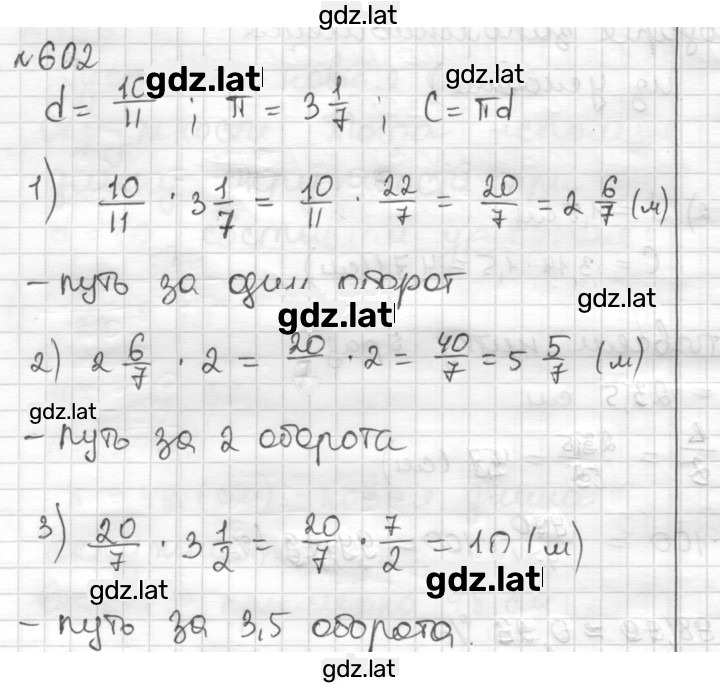 gdz.lat
№602
gdz.lat gdz.lat
d = 10/11 ; π = 3 1/7 ; C = πd
1) 10/11 · 3 1/7 = 10/11 · 22/7 = 20/7 = 2 6/7 (м)
- путь за один оборот
gdz.lat gdz.lat
2) 2 6/7 · 2 = 20/7 · 2 = 40/7 = 5 5/7 (м)
gdz.lat
- путь за 2 оборота
3) 20/7 · 3 1/2 = 20/7 · 7/2 = 10 (м)
gdz.lat gdz.lat
- путь за 3,5 оборота.
gdz.lat